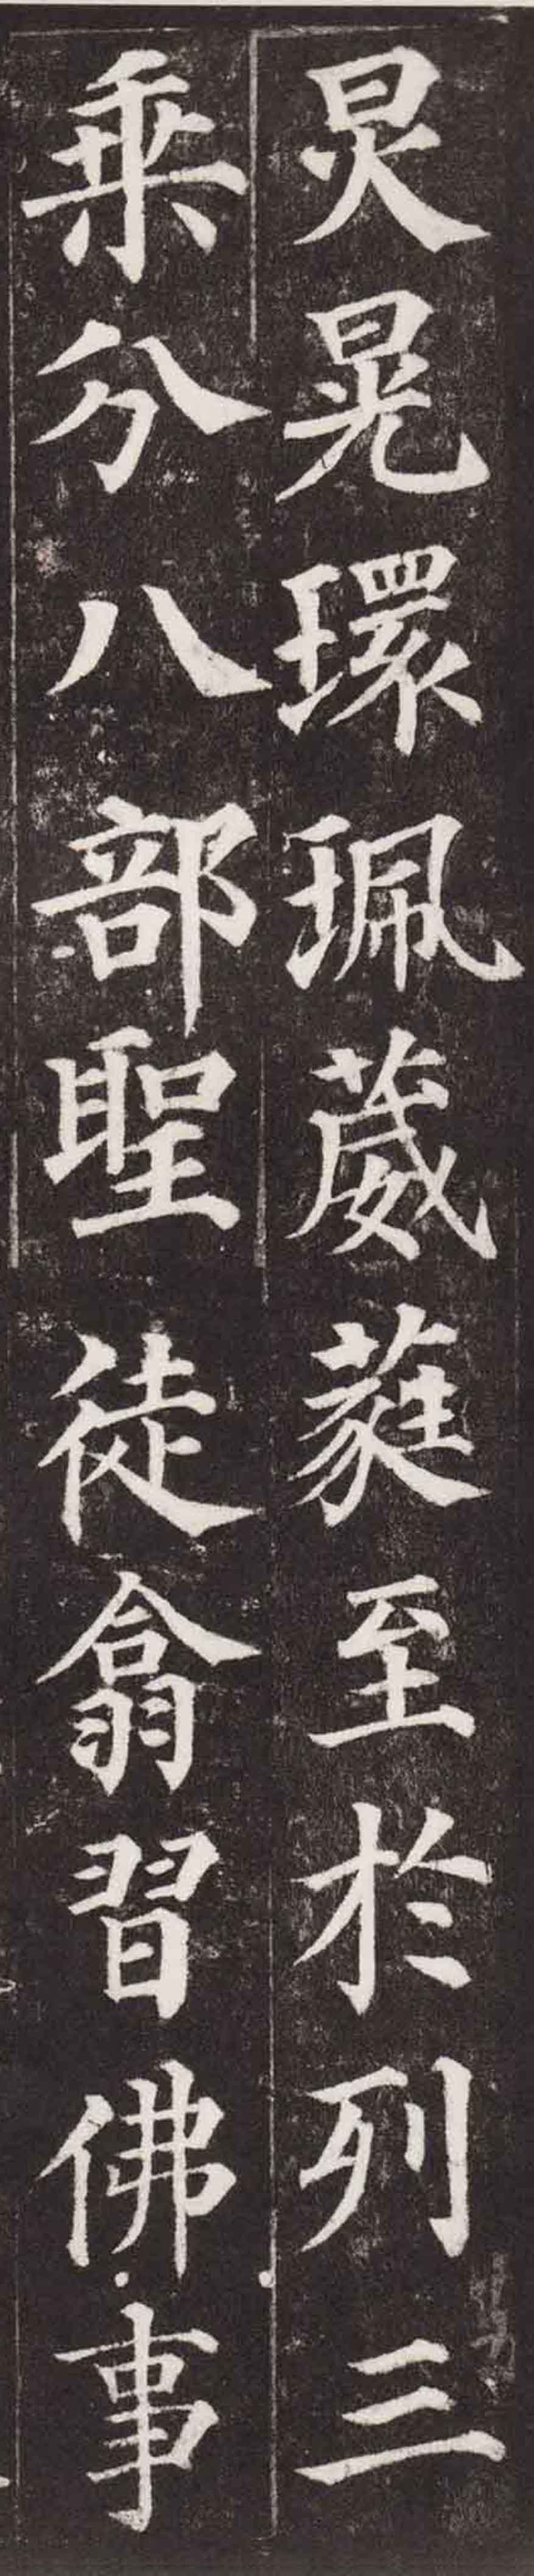 炅晃環珮葳蕤至於列三
乘分八部聖徒翕習佛事